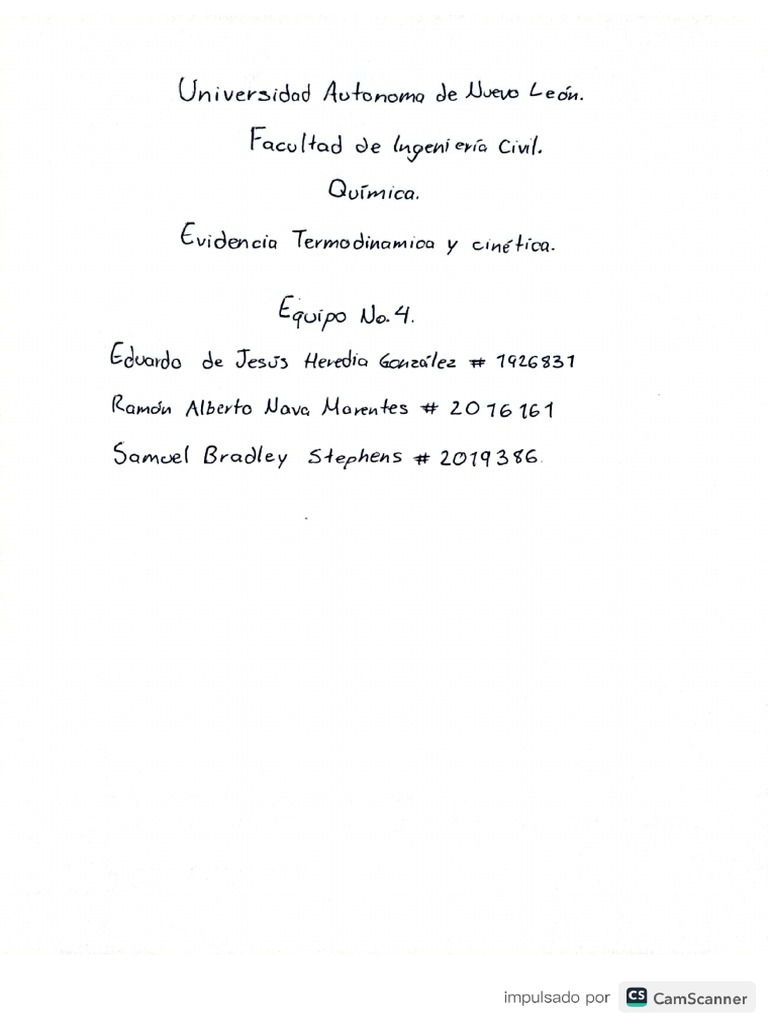 Universidad Autonoma de Nuevo León.
Facultad de Ingeniería Civil.
Química.
Evidencia Termodinamica y cinética.
Equipo No. 4.
Eduardo de Jesús Heredia González # 1926831
Ramón Alberto Nava Marentes # 2016161
Samuel Bradley Stephens # 2019386.
impulsado por CS CamScanner